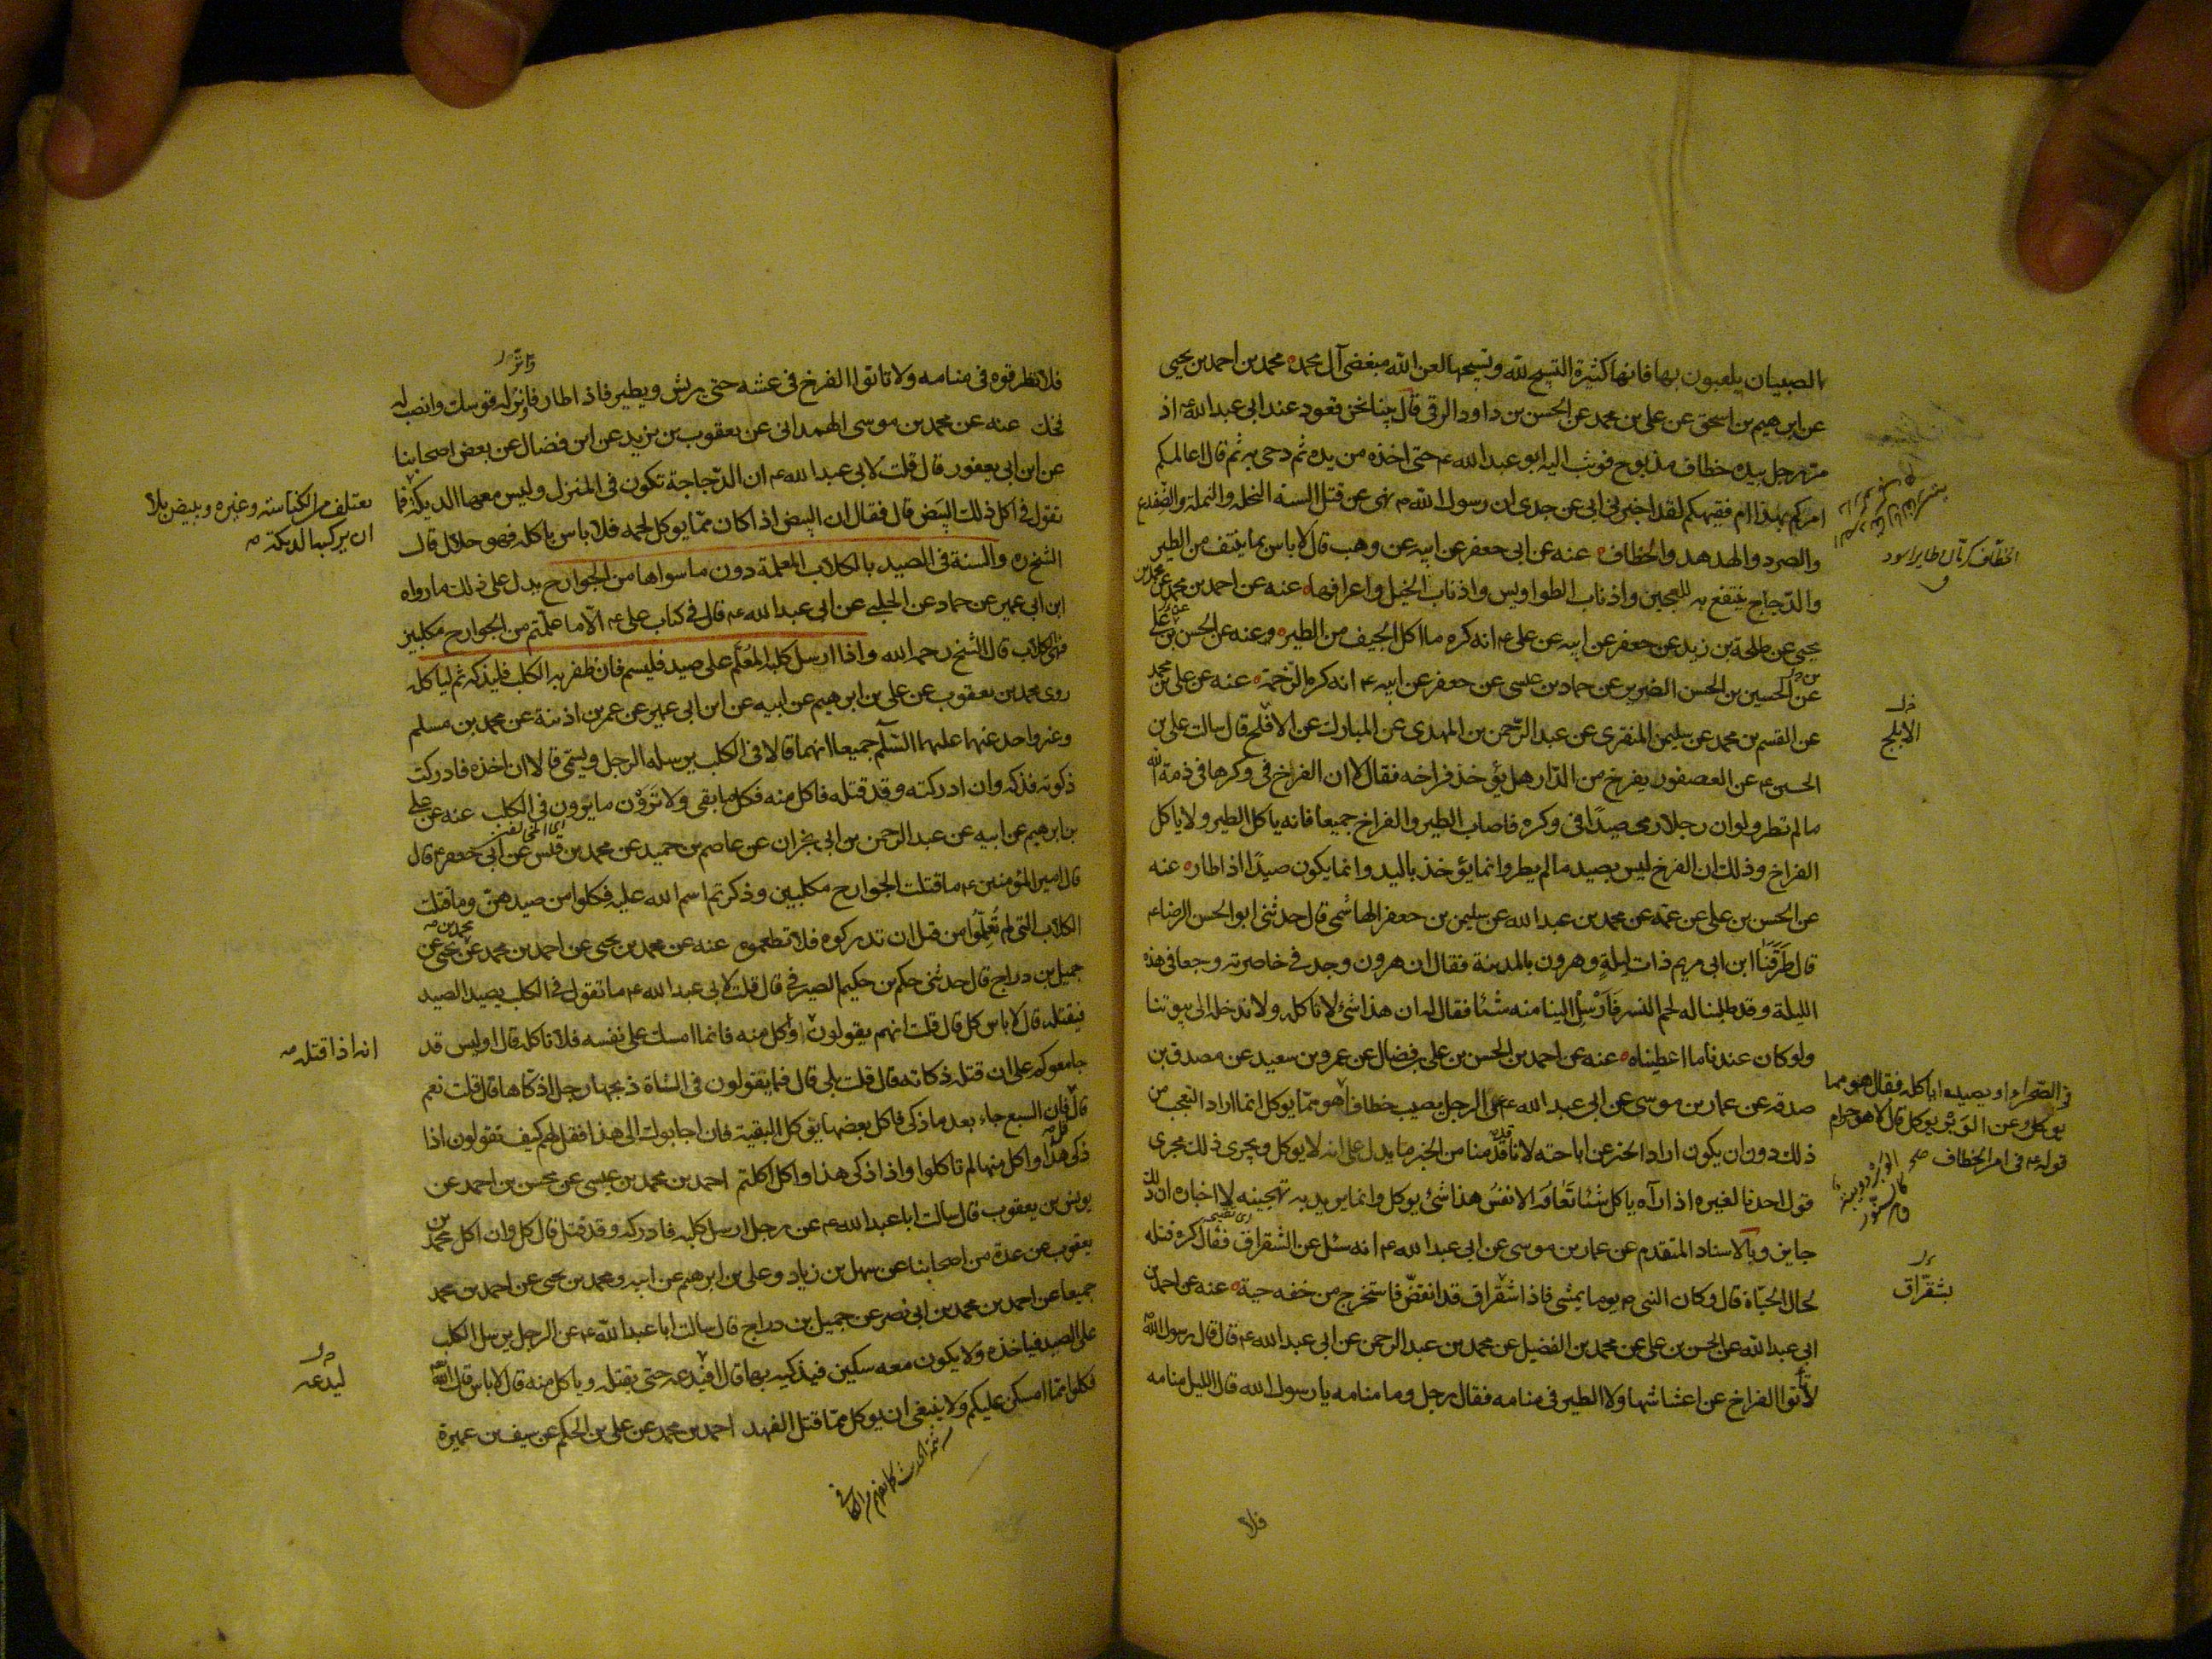 الصبيان يلعبون بها فانها كثيرة التسبيح لله وتسبيحها لعن الله مبغضى آل محمد محمد بن احمد بن يحيى
عن ابرهيم بن اسحق عن على بن محمد عن الحسن بن داود الرقى قال بينا نحن قعود عند ابى عبد الله ع اذ
مر رجل بيده خطاف مذبوح فوثب اليه ابو عبد الله ع حتى اخذه من يده ثم دحى به ثم قال اعالمكم
امركم بهذا ام فقيهكم لقد اخبرنى ابى عن جدى ان رسول الله ص نهى عن قتل الستة النحلة والنملة والضفدع
والصرد والهدهد والخطاف عنه عن ابى جعفر عن ابيه عن وهب قال لا باس بما ينتف من الطير
والدجاج ينتفع به للعجين واذناب الطواويس واذناب الخيل واعرافها عنه عن احمد بن محمد عن محمد بن
يحيى عن طلحة بن زيد عن جعفر عن ابيه عن على ع انه كره ما اكل الجيف من الطير وعنه عن الحسن بن على
عن الحسين بن الحسن الضرير عن حماد بن عيسى عن جعفر عن ابيه ع انه كره الرخمة عنه عن على بن محمد
عن القسم بن محمد عن سليمن المنقرى عن عبد الرحمن بن المهدى عن المبارك عن الافلح قال سالت على بن
الحسين ع عن العصفور يفرخ من الدار هل يؤخذ فراخه فقال لا ان الفراخ فى وكرها فى ذمة الله
ما لم تطر ولو ان رجلا رمى صيدا فى وكره فاصاب الطير والفراخ جميعا فانه ياكل الطير ولا ياكل
الفراخ وذلك ان الفرخ ليس بصيد ما لم يطر وانما يؤخذ باليد وانما يكون صيدا اذا طار عنه
عن الحسن بن على عن عمه عن محمد بن عبد الله عن سليمن بن جعفر الهاشمى قال حدثنى ابو الحسن الرضا ع
قال طرقنا ابن ابى مريم ذات ليلة وهرون بالمدينة فقال ان هرون وجد فى خاصرته وجعا فى هذه
الليلة وقد طلبنا له لحم النسر فارسل الينا منه شيئا فقال له ان هذا شئ لا ناكله ولا ندخله الى بيوتنا
ولو كان عندنا ما اعطيناه عنه عن احمد بن الحسن بن على بن فضال عن عمرو بن سعيد عن مصدق بن
صدقه عن عمار بن موسى عن ابى عبد الله ع عن الرجل يصيب خطافا هو مما يوكل انما اراد التعجب من
ذلك دون ان يكون اراد الخبر عن اباحته لانا قد قدمنا من الخبر ما يدل على انه لا يوكل ويجرى ذلك مجرى
قول احدنا لغيره اذا رآه ياكل شيئا تعافه الانفس هذا شئ يوكل وانما يريد به تهجينه لا اخباره ان ذلك
جايز وبالاسناد المتقدم عن عمار بن موسى عن ابى عبد الله ع انه سئل عن الشقراق فقال كره قتله
لحال الحياة قال وكان النبى ص يوما يمشى فاذا شقراق قد انقض فاستخرج من خفه حية عنه عن احمد بن
ابى عبد الله عن الحسن بن على عن محمد بن الفضيل عن محمد بن عبد الرحمن عن ابى عبد الله ع قال قال رسول الله
لا تاتوا الفراخ عن اعشاشها ولا الطير فى منامه فقال رجل وما منامه يا رسول الله قال الليل منامه
فلا
الخطاف كرمان طاير اسود
خ ل
الابلج
فى الصحراء او يصيده اياكله فقال هو مما
يوكل وعن الوبر يوكل قال لا هو حرام
قوله ع فى امر الخطاف صح
بشقراق
فلا تطرقوه فى منامه ولا تاتوا الفرخ فى عشه حتى يريش ويطير فاذا طار فاوتر له قوسك وانصب له
فخك عنه عن محمد بن موسى الهمدانى عن يعقوب بن يزيد عن ابن فضال عن بعض اصحابنا
عن ابن ابى يعفور قال قلت لابى عبد الله ع ان الدجاجة تكون فى المنزل وليس معها الديكة فما
تقول فى اكل ذلك البيض قال فقال ان البيض اذا كان مما يوكل لحمه فلا باس باكله فهو حلال قال
الشيخ ره والسنة فى الصيد بالكلاب المعلمة دون ما سواها من الجوارح يدل على ذلك ما رواه
ابن ابى عمير عن حماد عن الحلبى عن ابى عبد الله ع قال فى كتاب على ع الا ما علمتم من الجوارح مكلبين
فهى الكلاب قال الشيخ رحمه الله واذا ارسل كلبه المعلم على صيد فليسم فان ظفر به الكلب فليذكه ثم لياكله
روى محمد بن يعقوب عن على بن ابرهيم عن ابيه عن ابن ابى عمير عن عمر بن اذينة عن محمد بن مسلم
وغير واحد عنهما عليهما السلم جميعا انهما قالا فى الكلب يرسله الرجل ويسمى قالا ان اخذه فادركت
ذكوته فذكه وان ادركته وقد قتله فاكل منه فكل ما بقى ولا ترون ما يرون فى الكلب عنه عن على
بن ابرهيم عن ابيه عن عبد الرحمن بن ابى نجران عن عاصم بن حميد عن محمد بن قيس عن ابى جعفر ع قال
قال امير المؤمنين ع ما قتلت الجوارح مكلبين وذكرتم اسم الله عليه فكلوا من صيدهن وما قتلت
الكلاب التى لم تعلموا من قبل ان تدركوه فلا تطعموه عنه عن محمد بن يحيى عن احمد بن محمد عن محمد بن يحيى عن
جميل بن دراج قال حدثنى حكم بن حكيم الصيرفى قال قلت لابى عبد الله ع ما تقول فى الكلب يصيد الصيد
فيقتله قال لا باس كل قال قلت انهم يقولون اذا اكل منه فانما امسك على نفسه فلا تاكله قال اوليس قد
جامعوكم على ان قتله ذكاته قال قلت بلى قال فما يقولون فى الشاة ذبحها رجل اذكاها قال قلت نعم
قال فان السبع جاء بعد ما ذكى فاكل بعضها يوكل البقية فان اجابوك الى هذا فقل لهم كيف تقولون اذا
ذكى هذا واكل منها لم تاكلوا واذا ذكى هذا واكل اكلتم احمد بن محمد بن عيسى عن محسن بن احمد عن
يونس بن يعقوب قال سالت ابا عبد الله ع عن رجل ارسل كلبه فادركه وقد قتل قال كل وان اكل محمد بن
يعقوب عن عدة من اصحابنا عن سهل بن زياد وعلى بن ابرهيم عن ابيه ومحمد بن يحيى عن احمد بن محمد
جميعا عن احمد بن محمد بن ابى نصر عن جميل بن دراج قال سالت ابا عبد الله ع عن الرجل يرسل الكلب
على الصيد فياخذه ولا يكون معه سكين فيذكيه بها قال افيدعه حتى يقتله وياكل منه قال لا باس قال الله
فكلوا مما امسكن عليكم ولا ينبغى ان يوكل مما قتل الفهد احمد بن محمد عن على بن الحكم عن سيف بن عميرة
يعتلف من الكناسة وغيره ويبيض بلا
ان يركبها الديكة
انه اذا قتله
خ ل
ليدعه